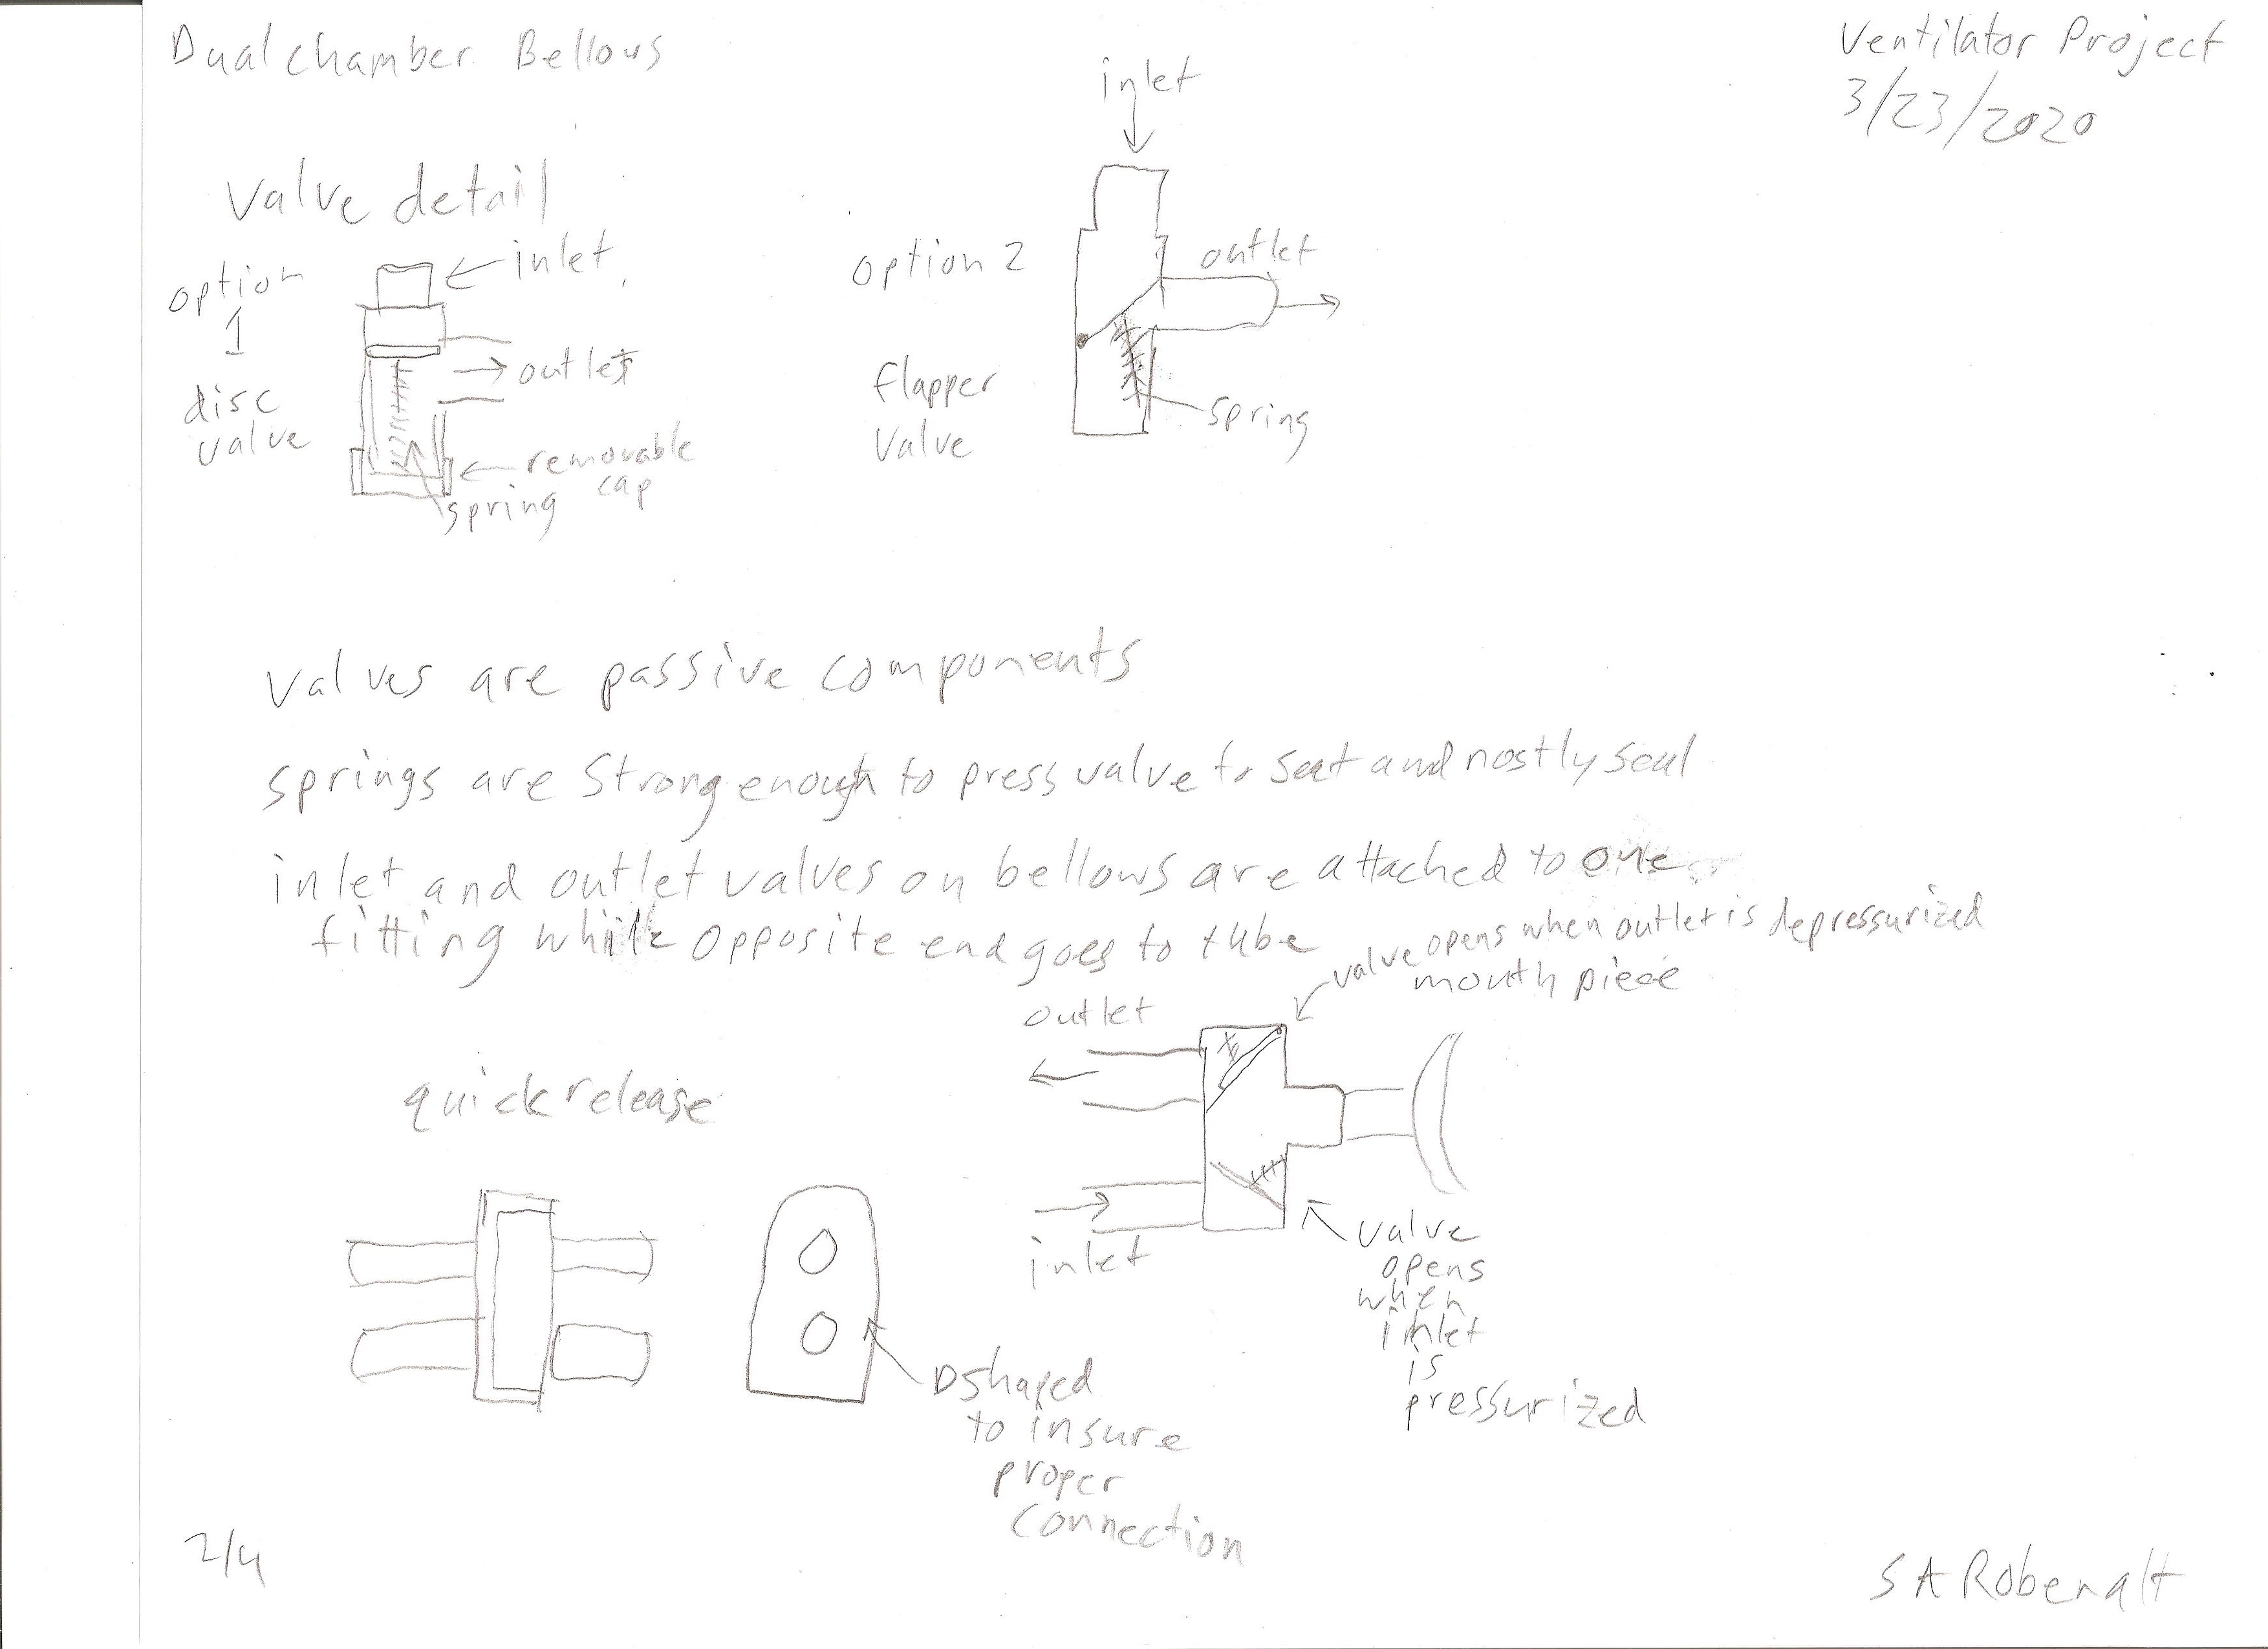 Dual chamber Bellows
Ventilator Project
3/23/2020
Valve detail
option
1
disc
valve
inlet
outlet
removable
cap
spring
inlet
option 2
outlet
flapper
Valve
spring
Valves are passive components
springs are strong enough to press valve to seat and mostly seal
inlet and outlet valves on bellows are attached to one
fitting while opposite end goes to tube
valve opens when outlet is depressurized
mouth piece
outlet
inlet
valve
opens
when
inlet
is
pressurized
quick release
D shaped
to insure
proper
connection
2/4
S A Robenalt